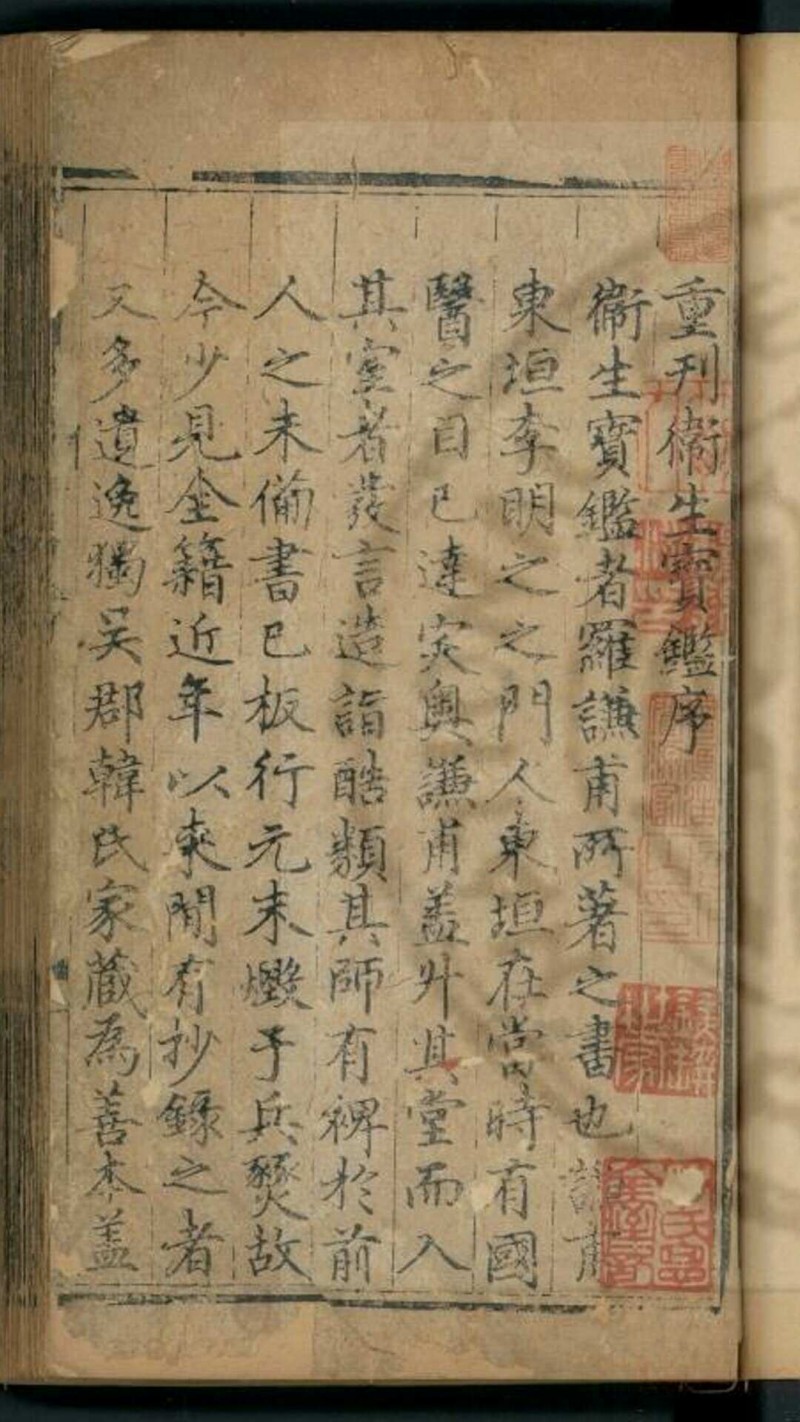 重刊衞生寳鑑序
衞生寳鑑者羅謙甫所著之書也謙甫
東垣李明之之門人東垣在當時有國
醫之目已達窔奥謙甫盖升其堂而入
其室者發言造詣酷類其師有裨於前
人之未備書已板行元末燬于兵燹故
今少見全籍近年以來間有抄錄之者
又多遺逸獨吴郡韓氏家蔵為善本盖